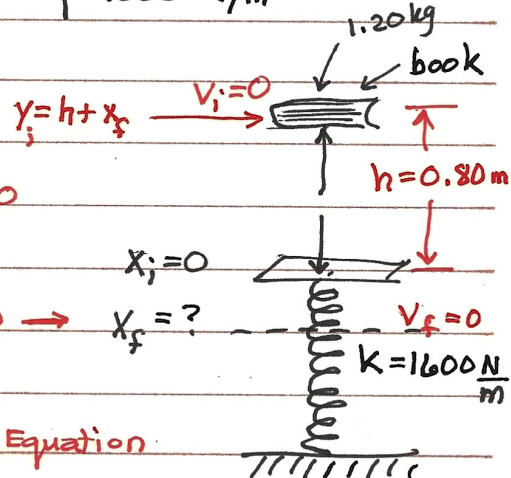 1.20kg
book
Vᵢ=0
yᵢ=h+x_f
h=0.80m
xᵢ=0
x_f=?
V_f=0
K=1600 N/m
Equation